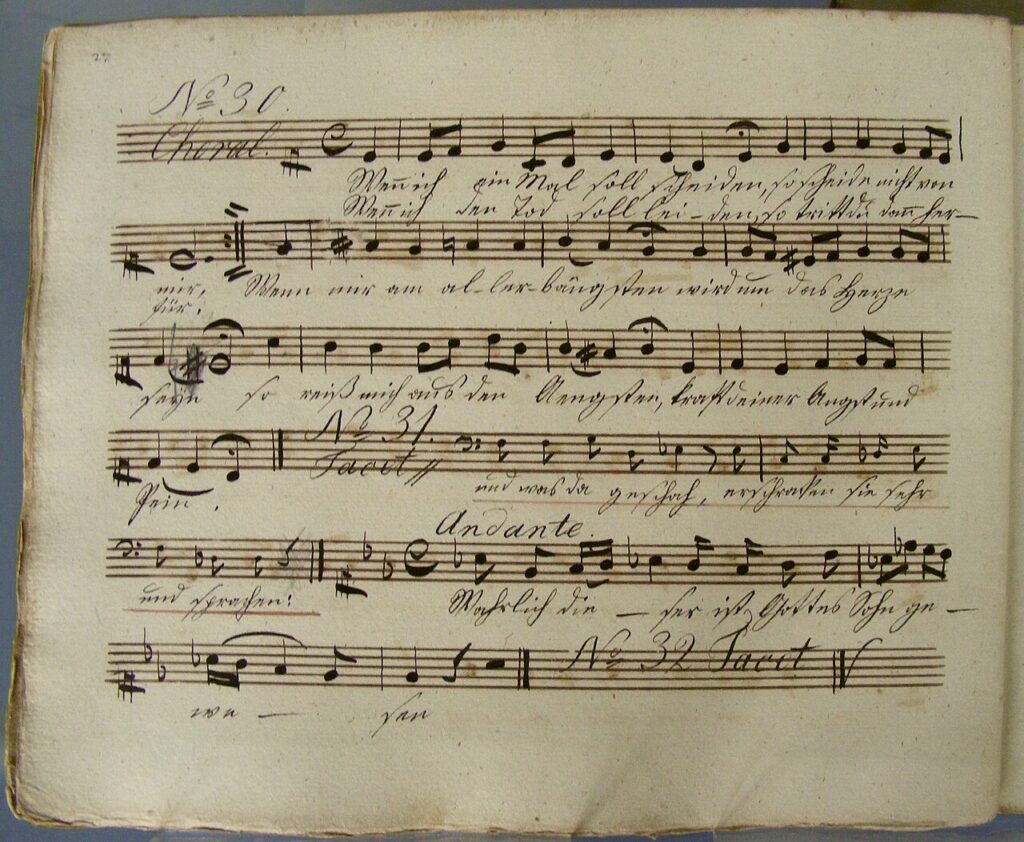 27
No 30.
Choral.
Wenn ich ein Mal soll scheiden, so scheide nicht von
Wenn ich den Tod soll lei-den, so tritt du dan her-
mir,
für:
Wenn mir am al-ler-bängsten wird um das Herze
seyn so reiß mich aus den Aengsten, kraft deiner Angst und
No 31.
Tacet
Pein.
und was da geschah, erschracken sie sehr
Andante.
und sprachen:
Wahrlich die - ser ist Gottes Sohn ge-
No 32 Tacet
we - sen